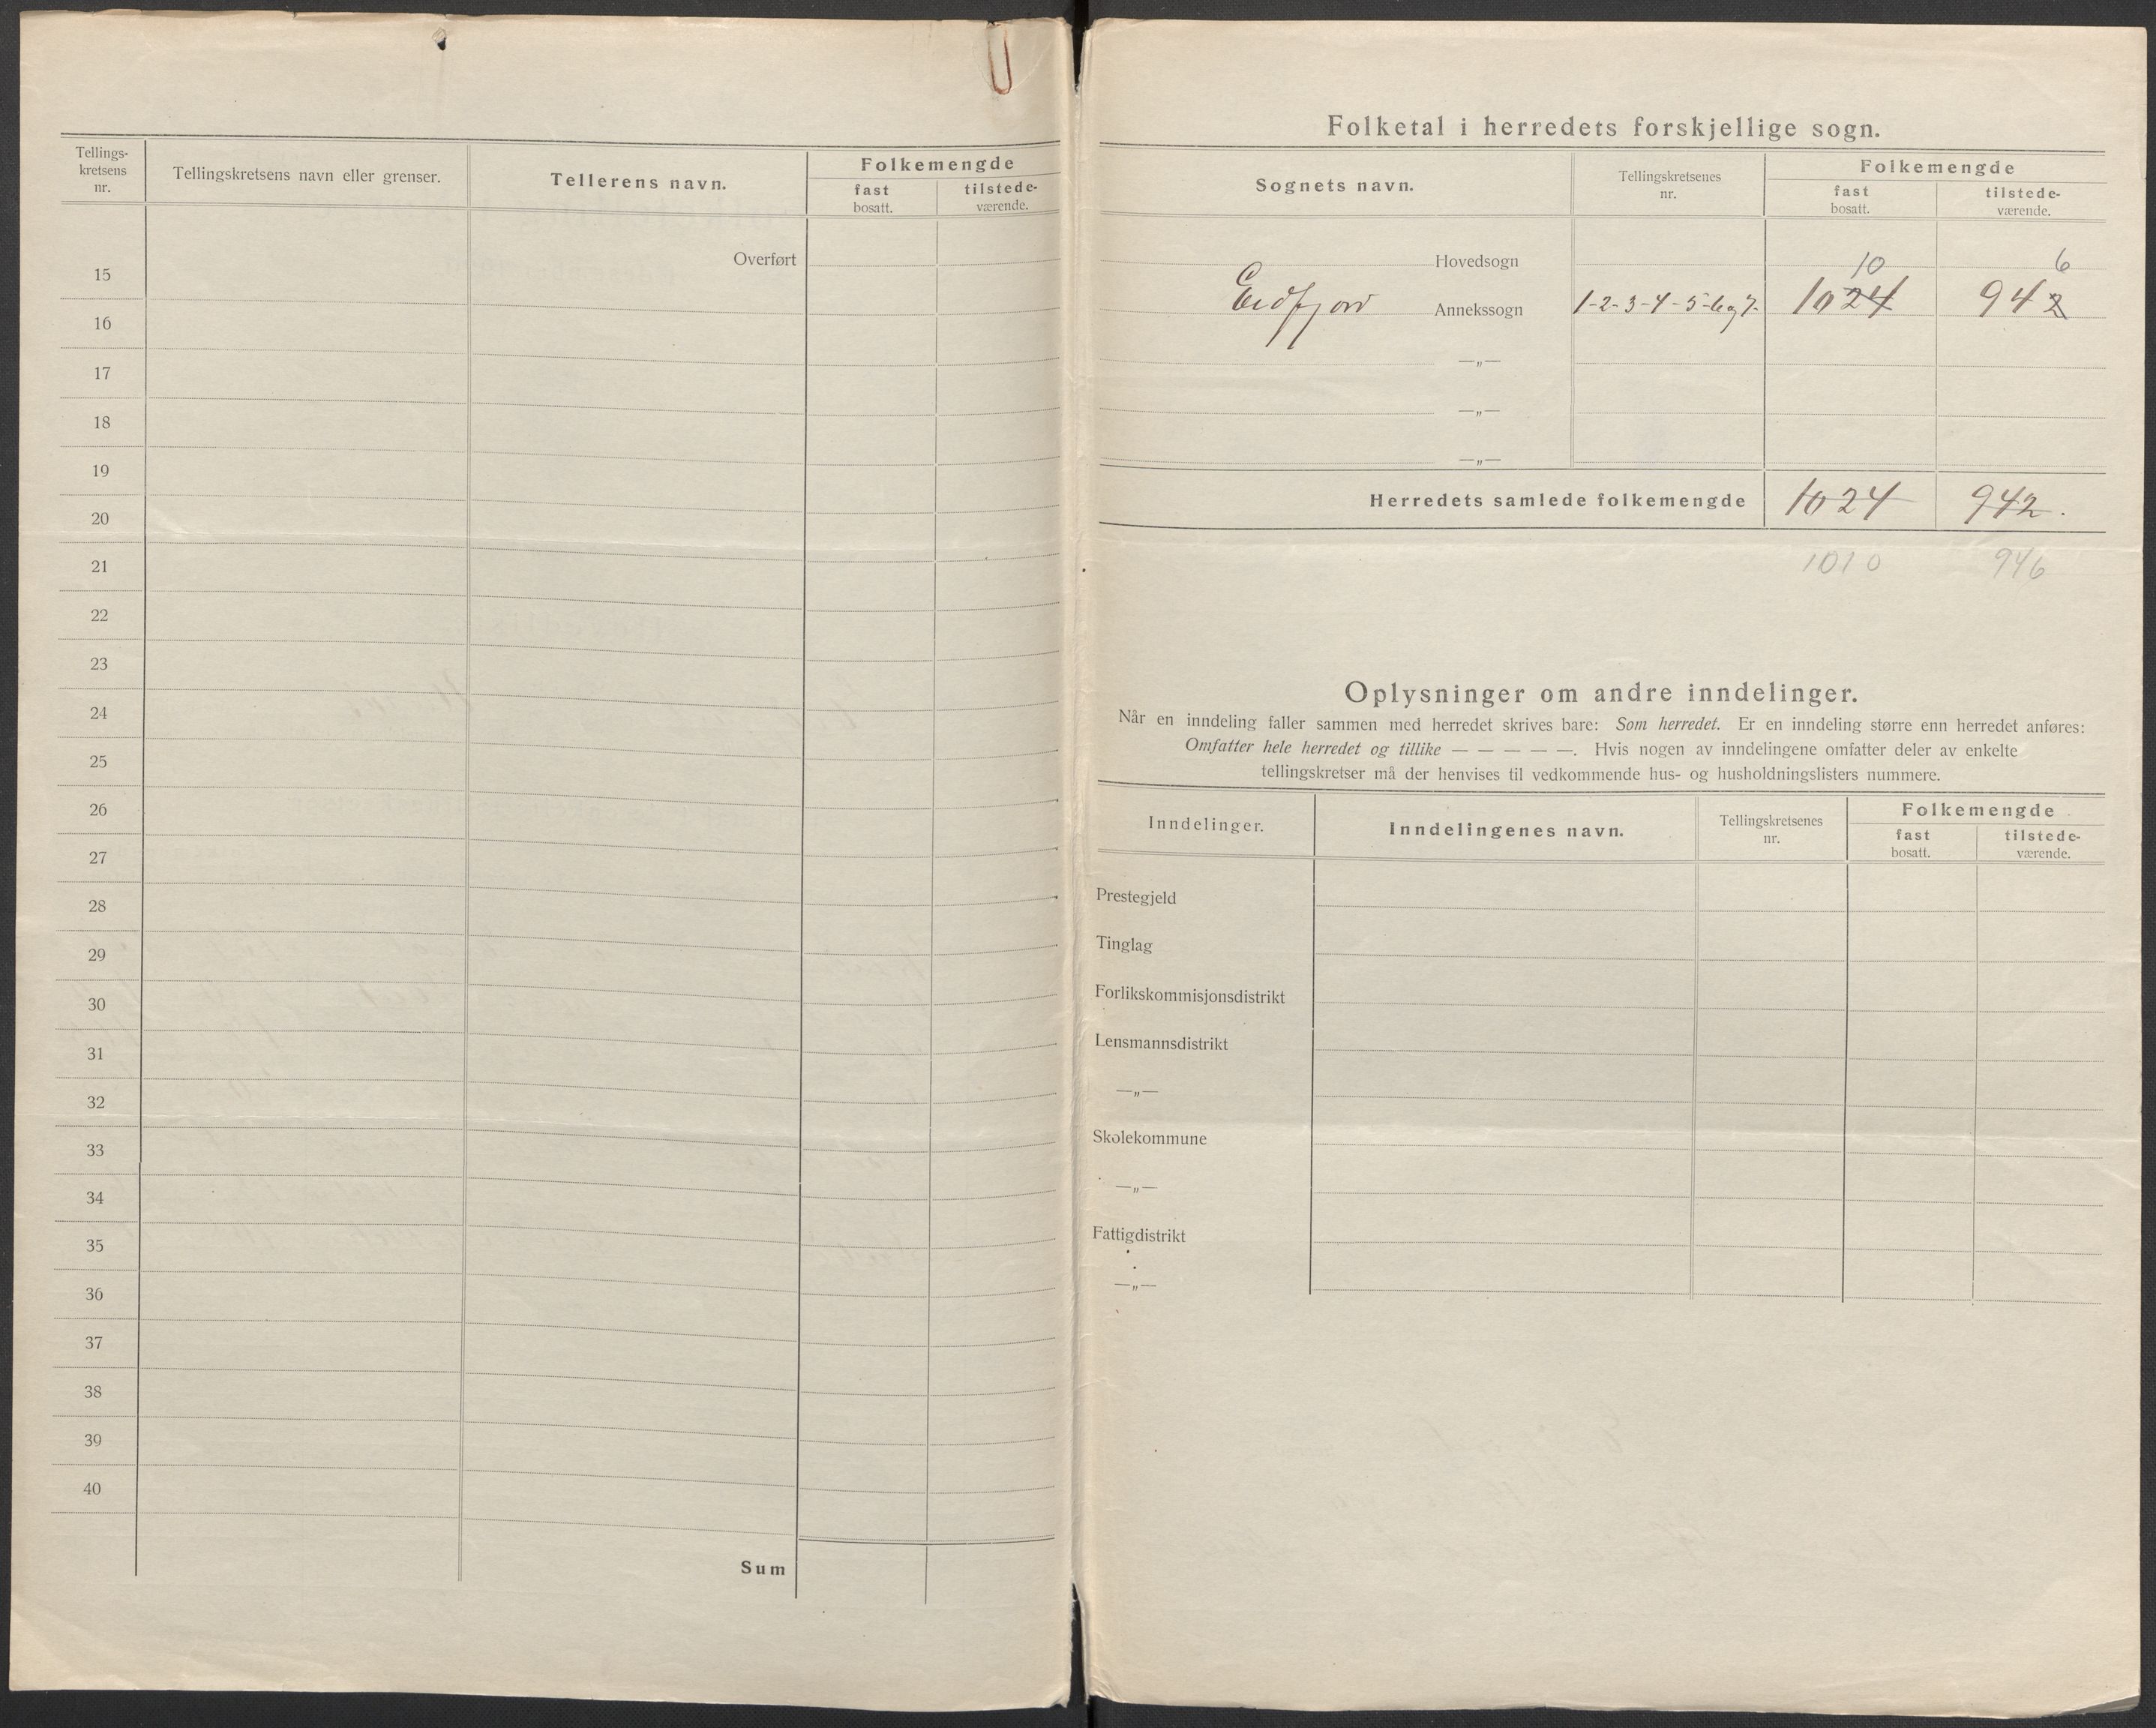 Tellings-
kretsens
nr.
Tellingskretsens navn eller grenser.
Tellerens navn.
Folkemengde
fast
bosatt.
tilstede-
værende.
Overført
15
16
17
18
19
20
21
22
23
24
25
26
27
28
29
30
31
32
33
34
35
36
37
38
39
40
Sum
Folketal i herredets forskjellige sogn.
Sognets navn.
Tellingskretsenes
nr.
Folkemengde
fast
bosatt.
tilstede-
værende.
Hovedsogn
10 6
Eidfjord Annekssogn 1-2-3-4-5-6og7- 1024 942
—„—
—„—
—„—
Herredets samlede folkemengde 1024 942.
1010 946
Oplysninger om andre inndelinger.
Når en inndeling faller sammen med herredet skrives bare: Som herredet. Er en inndeling større enn herredet anføres:
Omfatter hele herredet og tillike — — — — —. Hvis nogen av inndelingene omfatter deler av enkelte
tellingskretser må der henvises til vedkommende hus- og husholdningslisters nummere.
Inndelinger.
Inndelingenes navn.
Tellingskretsenes
nr.
Folkemengde
fast
bosatt.
tilstede-
værende.
Prestegjeld
Tinglag
Forlikskommisjonsdistrikt
Lensmannsdistrikt
—„—
Skolekommune
—„—
Fattigdistrikt
—„—